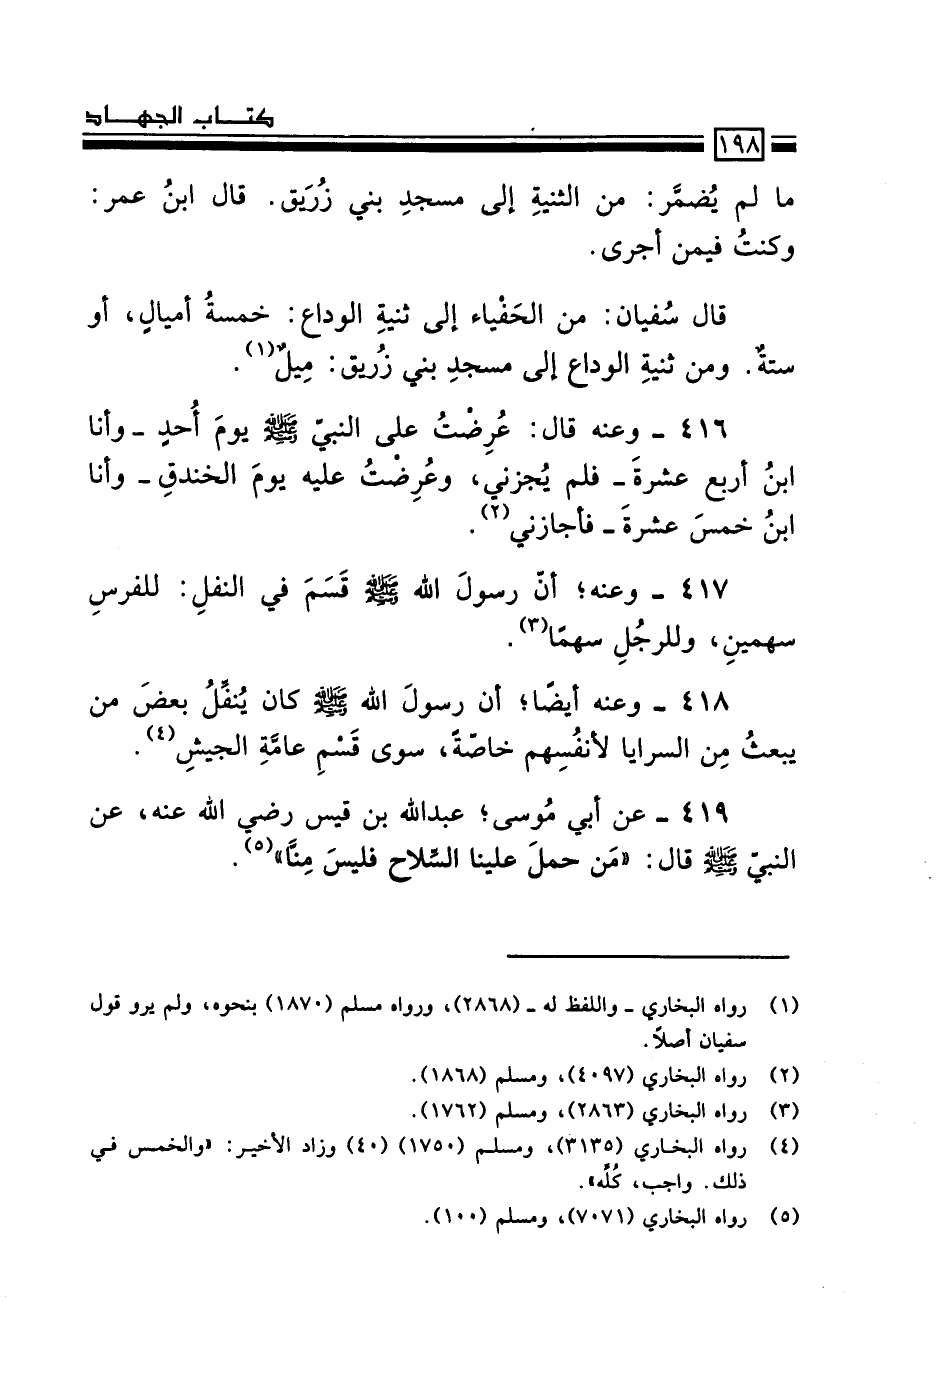 كتاب الجهاد
١٩٨
ما لم يُضمَّر: من الثنيةِ إلى مسجدِ بني زُرَيق. قال ابنُ عمر:
وكنتُ فيمن أجرى.
قال سُفيان: من الحَفْياء إلى ثنيةِ الوداع: خمسةُ أميالٍ، أو
ستةٌ. ومن ثنيةِ الوداع إلى مسجدِ بني زُريق: مِيلٌ(١).
٤١٦ ـ وعنه قال: عُرِضْتُ على النبيّ ﷺ يومَ أُحدٍ ـ وأنا
ابنُ أربع عشرةَ ـ فلم يُجزني، وعُرِضْتُ عليه يومَ الخندقِ ـ وأنا
ابنُ خمسَ عشرةَ ـ فأجازني(٢).
٤١٧ ـ وعنه؛ أنّ رسولَ الله ﷺ قَسَمَ في النفلِ: للفرسِ
سهمينِ، وللرجُلِ سهمًا(٣).
٤١٨ ـ وعنه أيضًا؛ أن رسولَ الله ﷺ كان يُنفِّلُ بعضَ من
يبعثُ مِن السرايا لأنفُسِهم خاصّةً، سوى قَسْمِ عامَّةِ الجيشِ(٤).
٤١٩ ـ عن أبي مُوسى؛ عبدالله بن قيس رضي الله عنه، عن
النبيّ ﷺ قال: «مَن حملَ علينا السِّلاح فليسَ مِنَّا»(٥).
(١) رواه البخاري ـ واللفظ له ـ (٢٨٦٨)، ورواه مسلم (١٨٧٠) بنحوه، ولم يرو قول
سفيان أصلاً.
(٢) رواه البخاري (٤٠٩٧)، ومسلم (١٨٦٨).
(٣) رواه البخاري (٢٨٦٣)، ومسلم (١٧٦٢).
(٤) رواه البخاري (٣١٣٥)، ومسلم (١٧٥٠) (٤٠) وزاد الأخير: «والخمس في
ذلك. واجب، كُلِّه».
(٥) رواه البخاري (٧٠٧١)، ومسلم (١٠٠).